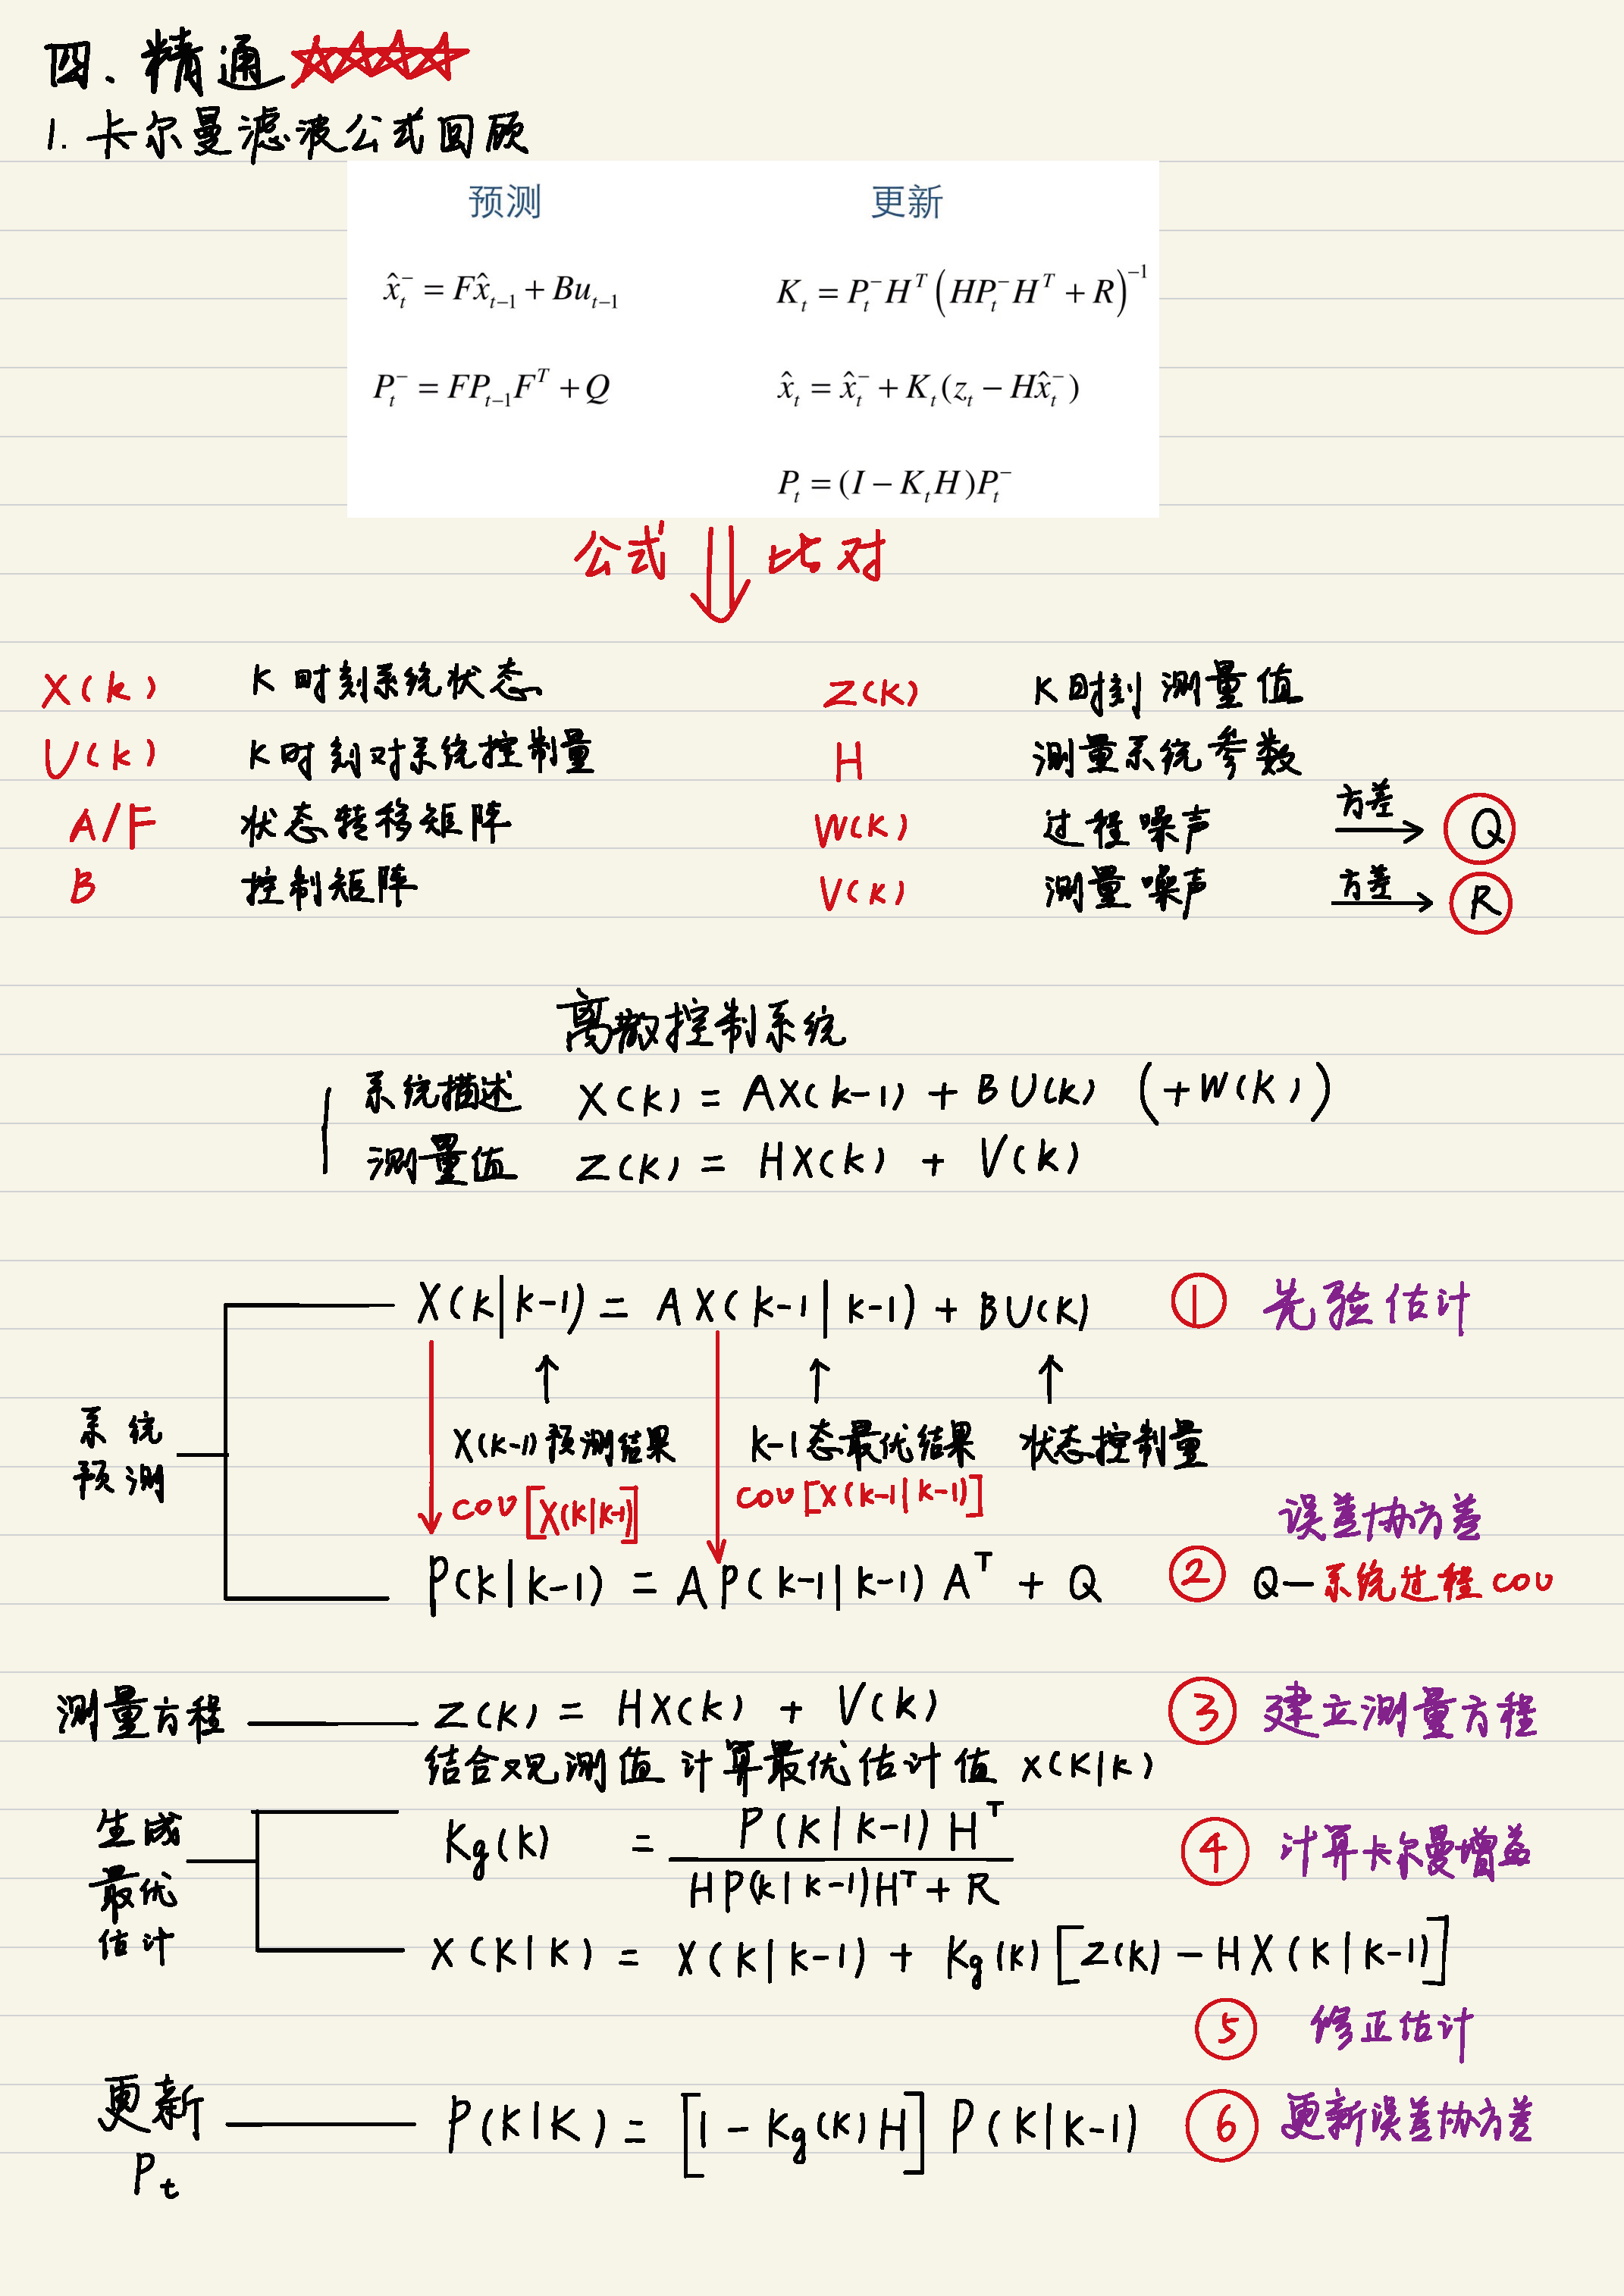 四. 精通
1. 卡尔曼滤波公式回顾
预测 更新
x̂ₜ⁻ = Fx̂ₜ₋₁ + Buₜ₋₁ Kₜ = Pₜ⁻Hᵀ(HPₜ⁻Hᵀ + R)⁻¹
Pₜ⁻ = FPₜ₋₁Fᵀ + Q x̂ₜ = x̂ₜ⁻ + Kₜ(zₜ − Hx̂ₜ⁻)
Pₜ = (I − KₜH)Pₜ⁻
公式 比对
X(k) K时刻系统状态 Z(K) K时刻测量值
U(k) K时刻对系统控制量 H 测量系统参数
A/F 状态转移矩阵 W(K) 过程噪声 方差 Q
B 控制矩阵 V(K) 测量噪声 方差 R
离散控制系统
系统描述 X(K) = AX(k-1) + BU(K) (+W(K))
测量值 Z(K) = HX(K) + V(K)
X(K|K-1) = AX(K-1|K-1) + BU(K) ① 先验估计
系统预测
X(K-1)预测结果 K-1态最优结果 状态控制量
cov[X(K|K-1)] cov[X(K-1|K-1)]
误差协方差
P(K|K-1) = AP(K-1|K-1)Aᵀ + Q ② Q—系统过程cov
测量方程 Z(K) = HX(K) + V(K) ③ 建立测量方程
结合观测值 计算最优估计值 X(K|K)
生成最优估计
Kg(K) = P(K|K-1)Hᵀ / HP(K|K-1)Hᵀ + R ④ 计算卡尔曼增益
X(K|K) = X(K|K-1) + Kg(K)[Z(K) - HX(K|K-1)]
⑤ 修正估计
更新 Pₜ P(K|K) = [1 - Kg(K)H] P(K|K-1) ⑥ 更新误差协方差